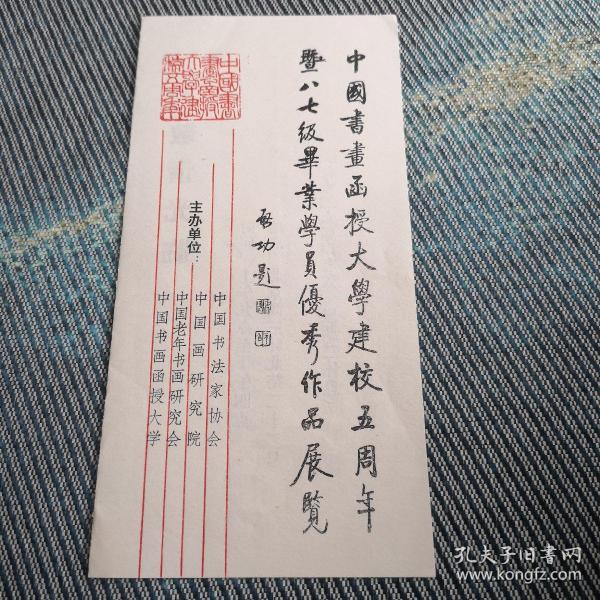 中國書畫函授大學建校五周年
暨八七级畢業學員優秀作品展覽
启功题
主办单位：
中国书法家协会
中国画研究院
中国老年书画研究会
中国书画函授大学
孔夫子旧书网
www.kongfz.com